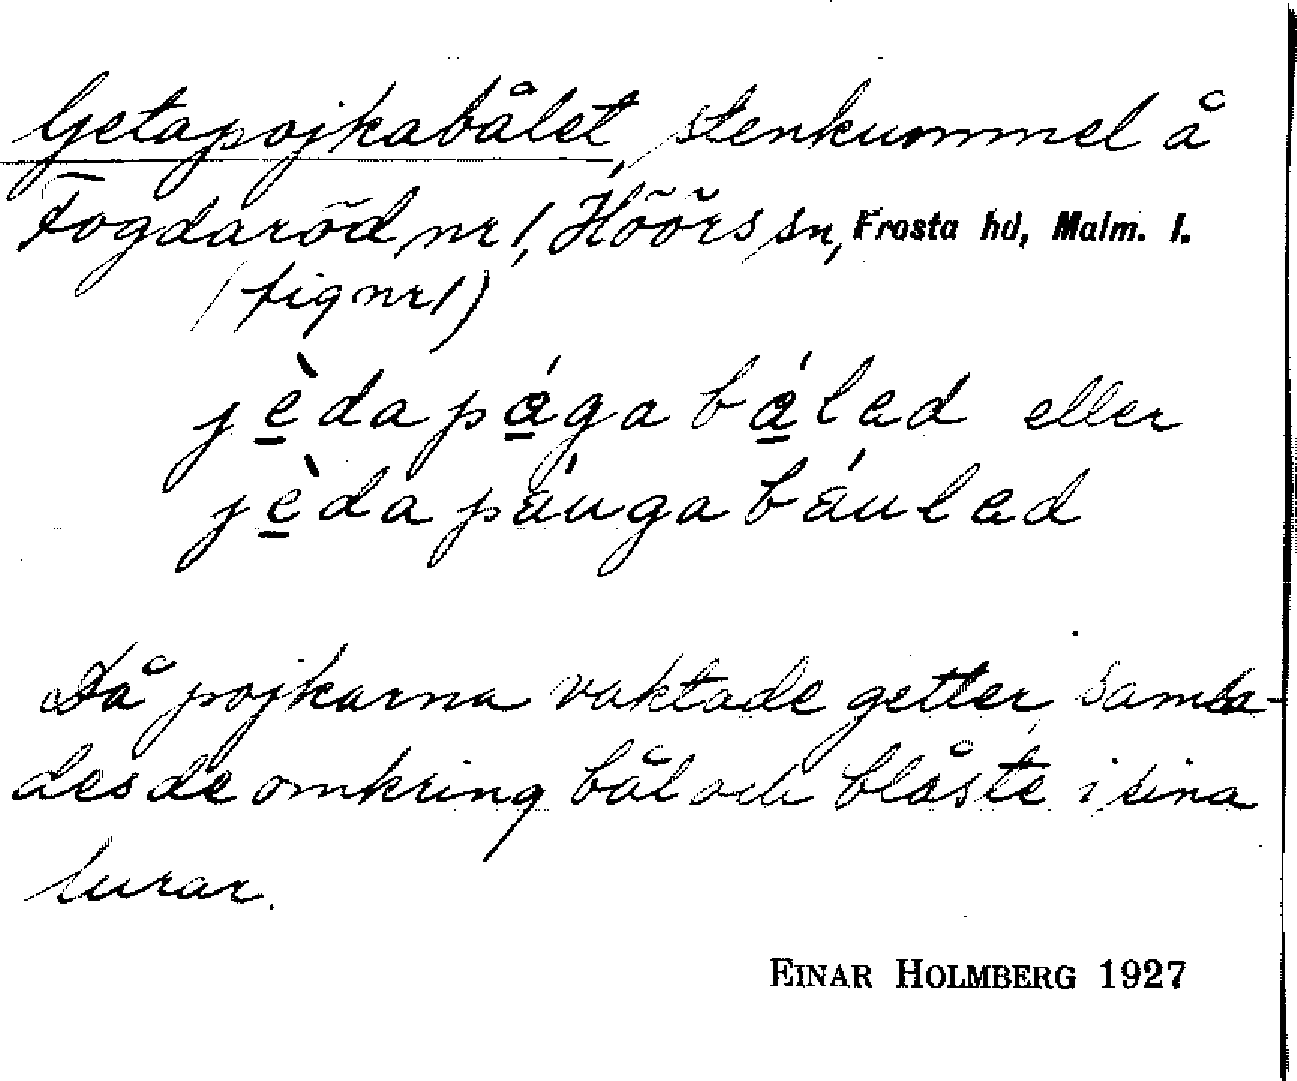 Getapojkabålet, stenkummel å
Fogdaröd nr 1, Höörs sn, Frosta hd, Malm. l.
(fig nr 1)
jèdapágabálad eller
jèdapáugabáulad
Då pojkarna vaktade getter, samla-
des de omkring bål och blåste i sina
lurar.
EINAR HOLMBERG 1927